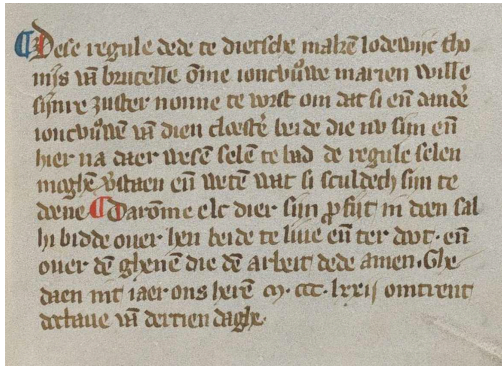 Dese regule dede te dietsche makē lodewijc tho
mijs vā bruselle ōme ioncvrouwe marien wille
sijnre zuster nonne te vorst om dat si eñ ander
ioncvrouwē vā dien cloester beide die nv sijn eñ
hier na daer wesē selē te bad de regule selen
moghē verstaen eñ wetē wat si sculdech sijn te
doene Darōme elc dier sijn profijt in doen sal
hi bidde ouer hen beide te liue eñ ter doot · eñ
ouer dē ghenē die dē arbeit dede amen · Ghe
daen int iaer ons herē m · ccc · lxxij omtrent
dechaue vā dertien daghe ·